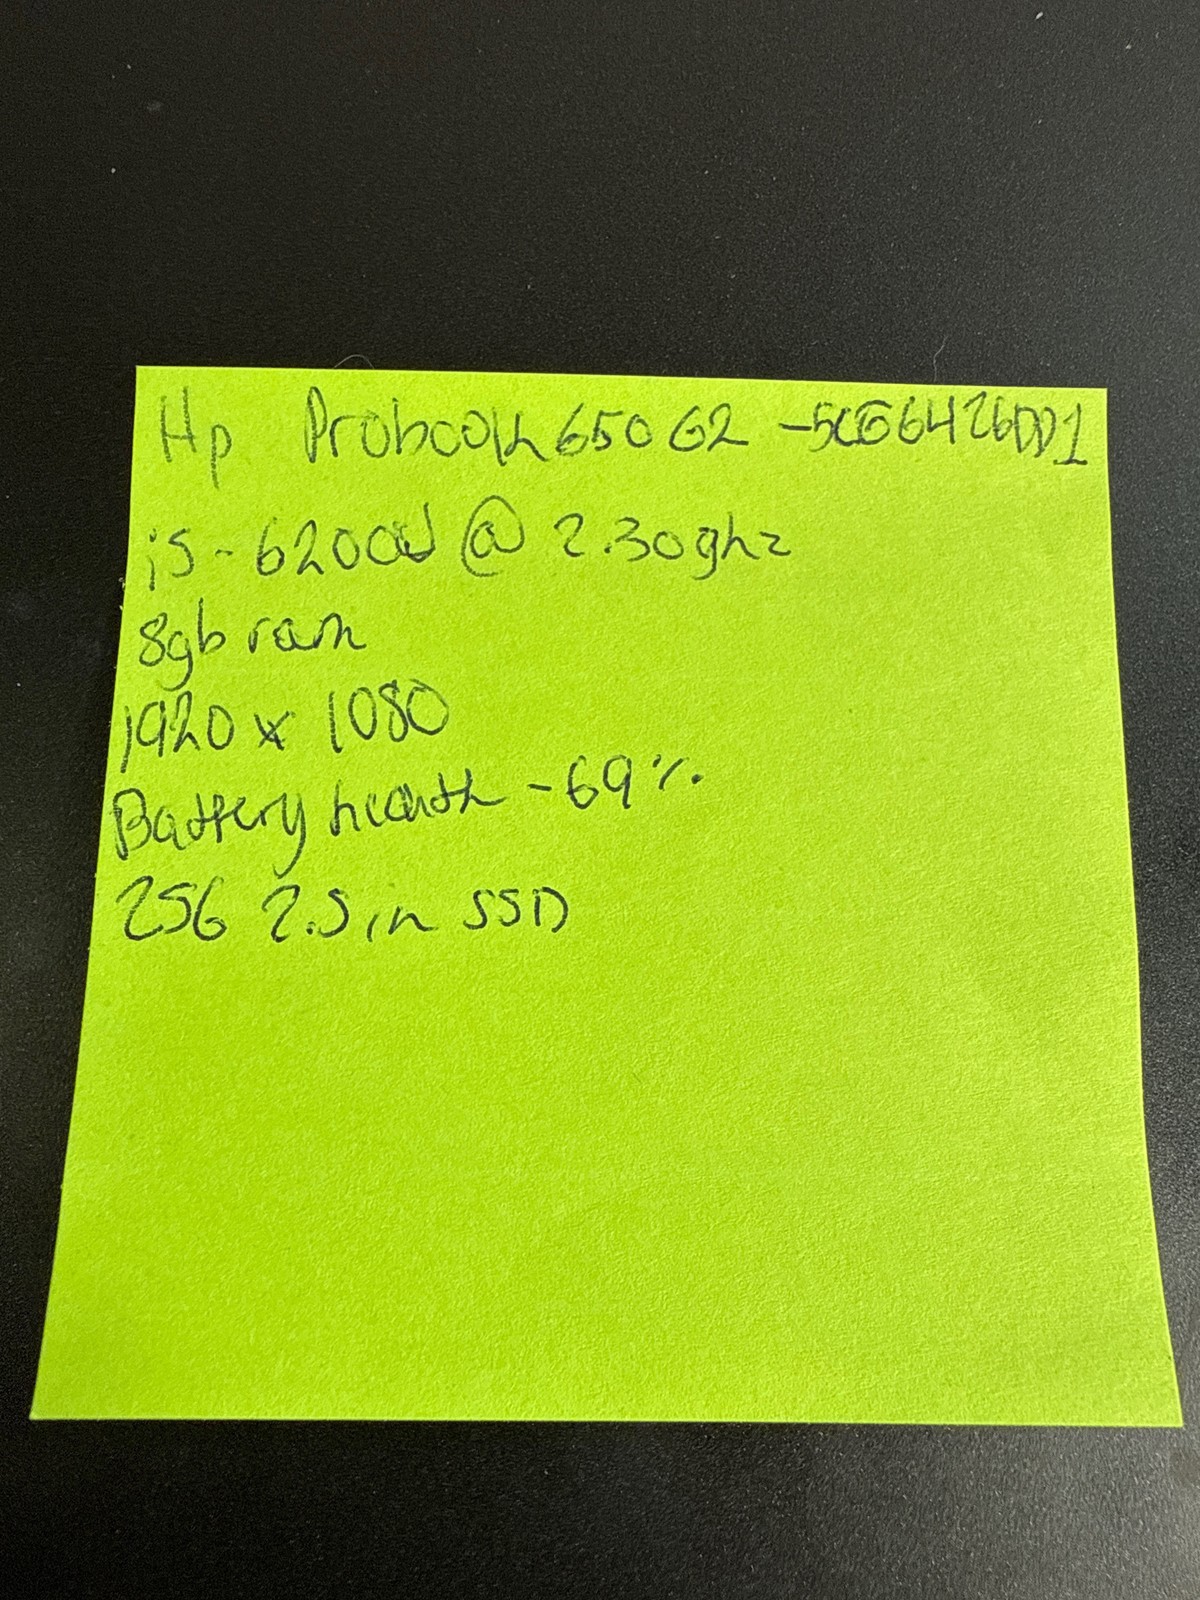 Hp Probook 650 G2 -5CG6426DD1
i5-6200U @ 2.30ghz
8gb ram
1920 x 1080
Battery health - 69%
256 2.5in SSD